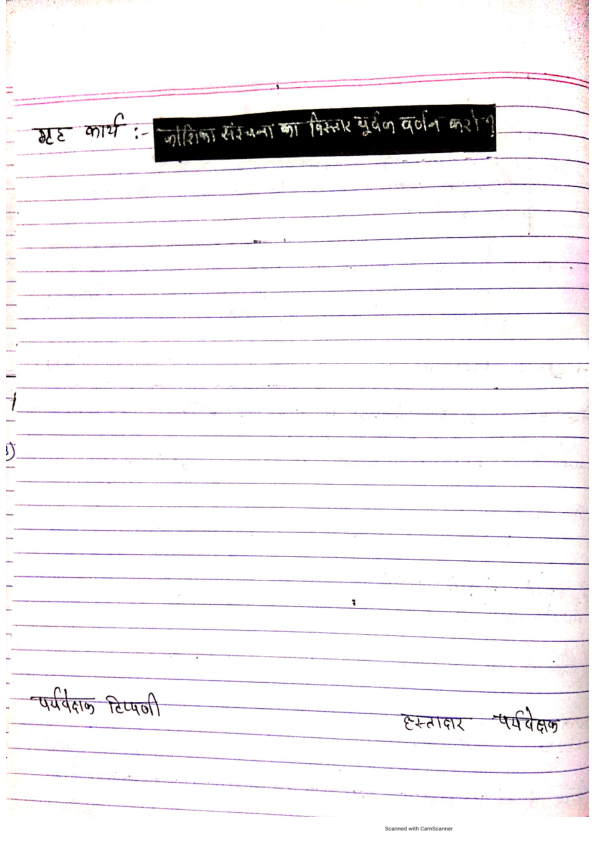 गृह कार्य :- कोशिका संरचना का विस्तार पूर्वक वर्णन करो ?
पर्यवेक्षक टिप्पणी
हस्ताक्षर पर्यवेक्षक
Scanned with CamScanner